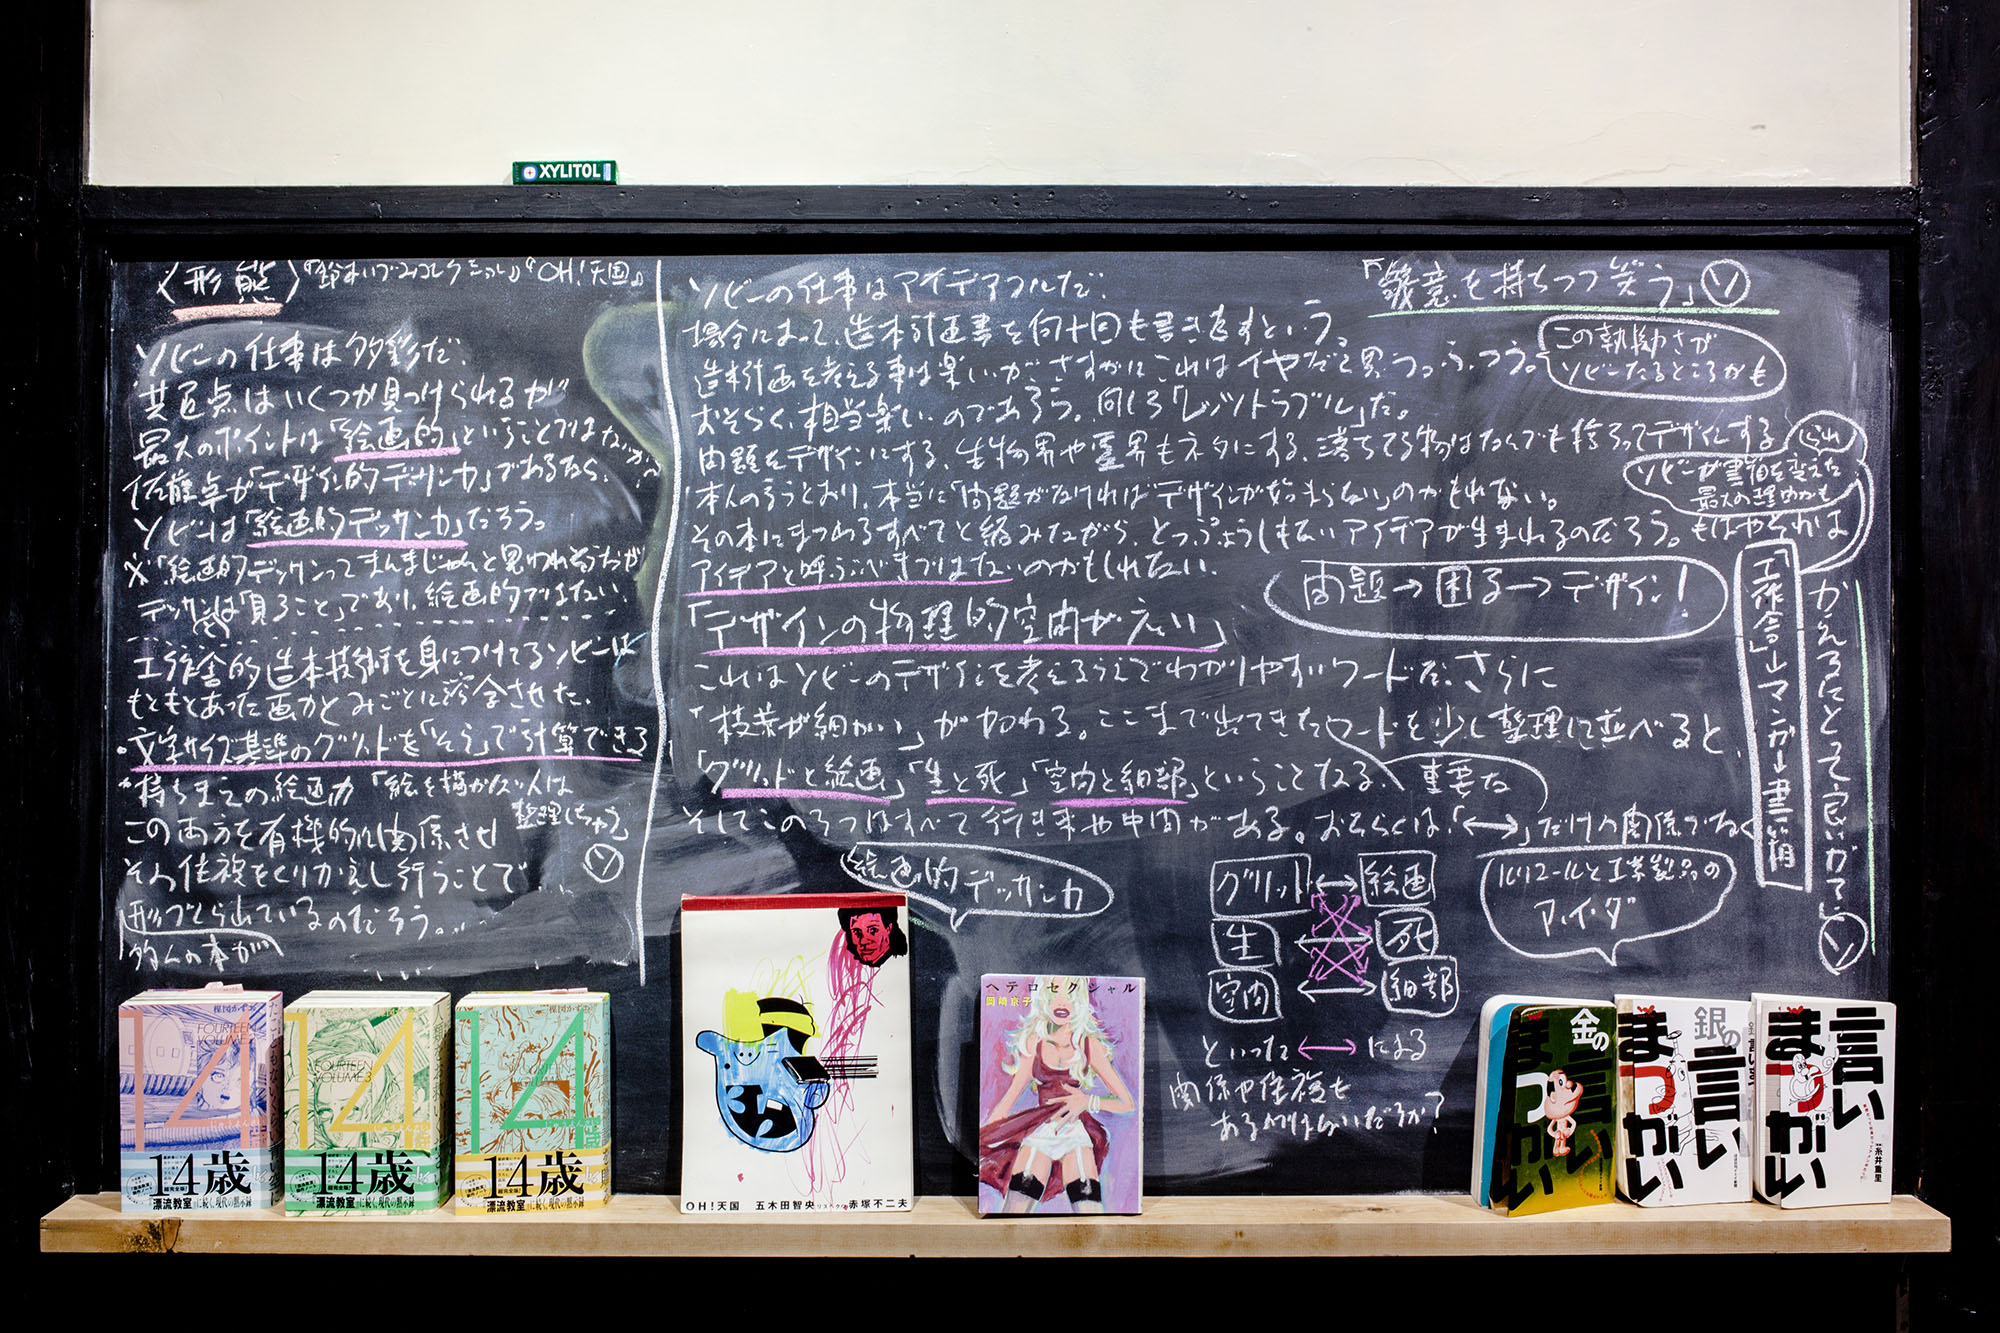 XYLITOL
〈形態〉『鈴木いづみコレクション』『OH!天国』
ソビーの仕事は多彩だ.
共通点はいくつか見つけられるが
最大のポイントは「絵画的」ということではないか?
佐藤卓が「デザイン的デッサン力」であるなら、
ソビーは「絵画的デッサン力」だろう。
※「絵画的デッサンってまんまじゃんと思われそうだが
デッサンとは「見ること」であり、絵画的ではない.
工作舎的造本技術を身につけてるソビーは
もともとあった画力とみごとに融合させた.
・文字サイズ基準のグリッドを「そらで」計算できる
・持ちまえの絵画力「絵を描かない人は
整理しちゃう」ソ
この両方を有機的に関係させ
その往復をくりかえし行うことで…
形づくられているのだろう。..
多くの本が
ソビーの仕事はアイデアフルだ.
場合によって、造本計画書を何十回も書き直すという。
造本計画を考える事は楽しいが、さすがにこれはイヤだと思う。ふつう。
この執拗さが
ソビーたるところかも
おそらく、相当楽しいのであろう。何しろ「レッツトラブル」だ。
問題をデザインにする、生物界や霊界もネタにする、落ちてる物はなんでも拾ってデザインする
本人の言うとおり、本当に「問題がなければデザインが始まらない」のかもれない。
その本にまつわるすべてと絡みながら、とっぴょうしもないアイデアが生まれるのだろう。もはやそれは
アイデアと呼ぶべきではないのかもしれない.
「デザインの物理的空間が広い」
これはソビーのデザインを考えるうえでわかりやすいワードだ.さらに
「枝葉が細かい」が加わる。ここまで出てきたワードを少し整理して並べると、
重要な
「グリッドと絵画」「生と死」「空間と細部」ということなる.
そしてこの3つはすべて行き来や中間がある。おそらくは、「⟷」だけの関係でなく
「幾意を持ちつつ笑う」ソ
られ
ソビーが書箱を変えた
最大の理由かも
問題→困る→デザイン!
「工作舎」→マンガ→書箱
かえるにとって良いがてい ソ
絵画的デッサン力
グリッド ⟷ 絵画
生 ⟷ 死
空間 ⟷ 細部
といった ⟷ による
関係や往復も
あるのではないだろうか?
ルリユールと工業製品の
アイダ
楳図かずお
14
FOURTEEN
14歳
漂流教室に続く、現代の黙示録
14
FOURTEEN
VOLUME 3
14歳
漂流教室に続く、現代の黙示録
楳図かずお
14
14歳
漂流教室に続く、現代の黙示録
OH!天国 五木田智央 リスペクト 赤塚不二夫
ヘテロセクシャル
岡崎京子
金の言いまつがい
銀の言いまつがい
言いまつがい
糸井重里